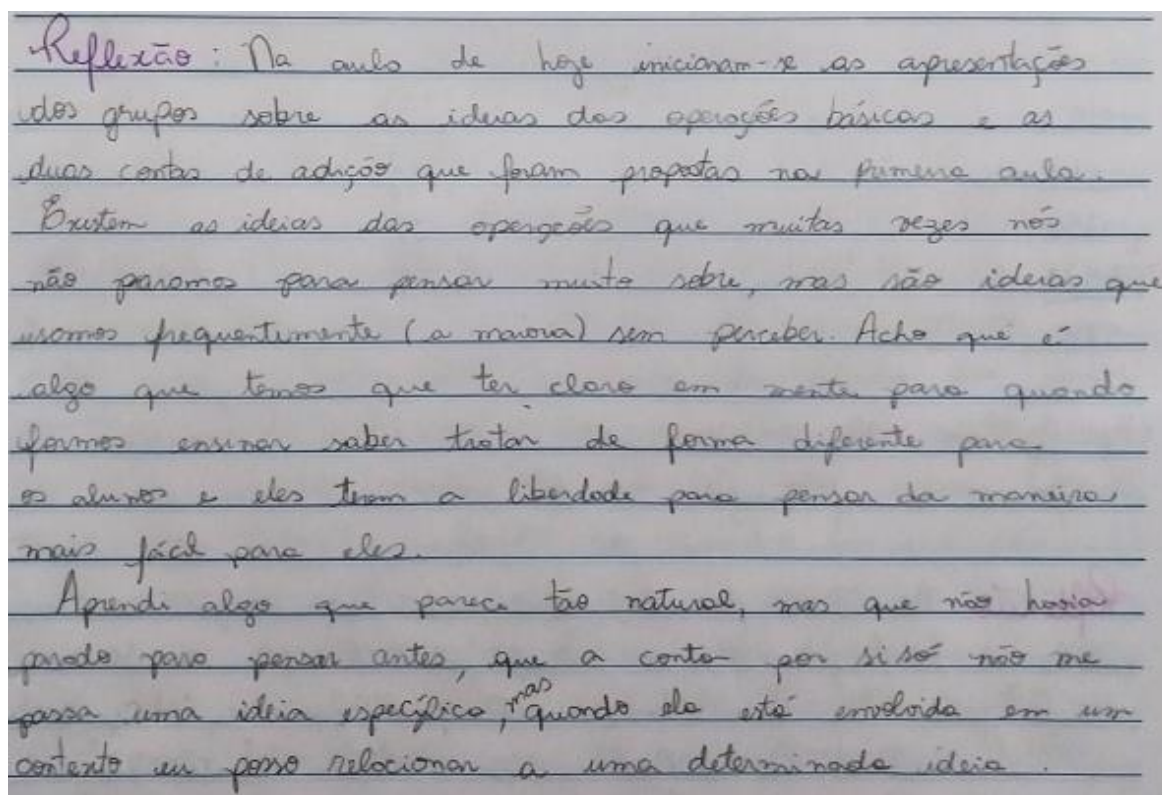 Reflexão: Na aula de hoje iniciaram-se as apresentações
dos grupos sobre as ideias das operações básicas e as
duas contas de adição que foram propostas na primeira aula.
Existem as ideias das operações que muitas vezes nós
não paramos para pensar muito sobre, mas são ideias que
usamos frequentemente (a maioria) sem perceber. Acho que é
algo que temos que ter claro em mente para quando
formos ensinar saber tratar de forma diferente para
os alunos e eles terem a liberdade para pensar da maneira
mais fácil para eles.
Aprendi algo que parece tão natural, mas que não havia
parado para pensar antes, que a conta por si só não me
passa uma ideia específica, mas quando ela está envolvida em um
contexto eu posso relacionar a uma determinada ideia.